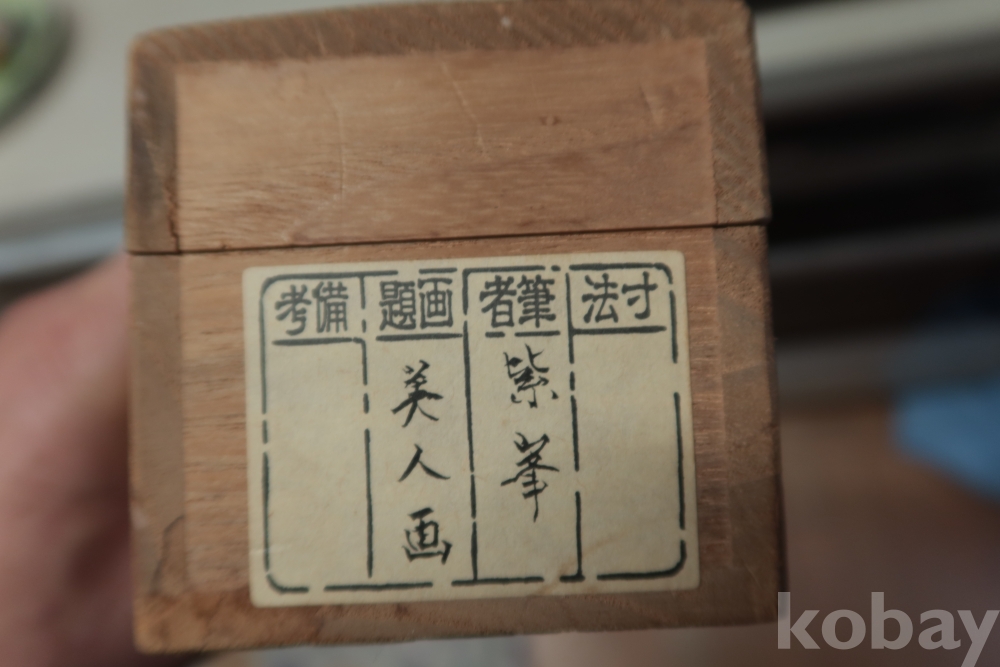 寸法
筆者
紫峯
画題
美人画
備考
kobay